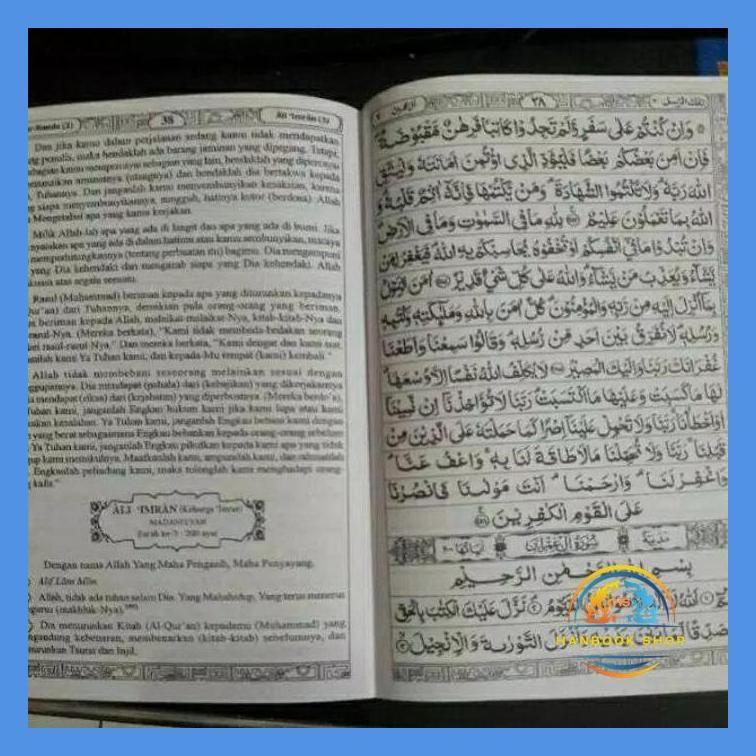 38
Dan jika kamu dalam perjalanan sedang kamu tidak mendapatkan
penulis, maka hendaklah ada barang jaminan yang dipegang. Tetapi,
kamu mempercayai sebagian yang lain, hendaklah yang dipercayai
amanatnya (utangnya) dan hendaklah dia bertakwa kepada
Tuhannya. Dan janganlah kamu menyembunyikan kesaksian, karena
siapa menyembunyikannya, sungguh, hatinya kotor (berdosa). Allah
Mengetahui apa yang kamu kerjakan.
Milik Allah-lah apa yang ada di langit dan apa yang ada di bumi. Jika
apa yang ada di dalam hatimu atau kamu sembunyikan, niscaya
memperhitungkannya (tentang perbuatan itu) bagimu. Dia mengampuni
yang Dia kehendaki dan mengazab siapa yang Dia kehendaki. Allah
atas segala sesuatu.
Rasul (Muhammad) beriman kepada apa yang diturunkan kepadanya
dari Tuhannya, demikian pula orang-orang yang beriman.
beriman kepada Allah, malaikat-malaikat-Nya, kitab-kitab-Nya dan
rasul-Nya. (Mereka berkata), "Kami tidak membeda-bedakan seorang
dari rasul-rasul-Nya." Dan mereka berkata, "Kami dengar dan kami taat.
kami Ya Tuhan kami, dan kepada-Mu tempat (kami) kembali."
Allah tidak membebani seseorang melainkan sesuai dengan
Dia mendapat (pahala) dari (kebajikan) yang dikerjakannya
mendapat (siksa) dari (kejahatan) yang diperbuatnya. (Mereka berdo'a),
Tuhan kami, janganlah Engkau hukum kami jika kami lupa atau kami
kesalahan. Ya Tuhan kami, janganlah Engkau bebani kami dengan
yang berat sebagaimana Engkau bebankan kepada orang-orang sebelum
Ya Tuhan kami, janganlah Engkau pikulkan kepada kami apa yang tidak
kami memikulnya. Maafkanlah kami, ampunilah kami, dan rahmatilah
Engkaulah pelindung kami, maka tolonglah kami menghadapi orang-
kafir."
ĀLI 'IMRĀN (Keluarga 'Imran)
MADANIYYAH
Surah ke-3 : 200 ayat
Dengan nama Allah Yang Maha Pengasih, Maha Penyayang.
Alif Lām Mīm.
Allah, tidak ada tuhan selain Dia. Yang Mahahidup, Yang terus menerus
(makhluk-Nya).
Dia menurunkan Kitab (Al-Qur'an) kepadamu (Muhammad) yang
mengandung kebenaran, membenarkan (kitab-kitab) sebelumnya, dan
menurunkan Taurat dan Injil,
٣٨
وَاِنْ كُنْتُمْ عَلٰى سَفَرٍ وَّلَمْ تَجِدُوْا كَاتِبًا فَرِهٰنٌ مَّقْبُوْضَةٌ
فَاِنْ اَمِنَ بَعْضُكُمْ بَعْضًا فَلْيُؤَدِّ الَّذِى اؤْتُمِنَ اَمَانَتَهٗ وَلْيَتَّقِ
اللّٰهَ رَبَّهٗ وَلَا تَكْتُمُوا الشَّهَادَةَ وَمَنْ يَّكْتُمْهَا فَاِنَّهٗٓ اٰثِمٌ قَلْبُهٗ وَ
اللّٰهُ بِمَا تَعْمَلُوْنَ عَلِيْمٌ لِلّٰهِ مَا فِى السَّمٰوٰتِ وَمَا فِى الْاَرْضِ
وَاِنْ تُبْدُوْا مَا فِيْٓ اَنْفُسِكُمْ اَوْ تُخْفُوْهُ يُحَاسِبْكُمْ بِهِ اللّٰهُ فَيَغْفِرُ لِمَنْ
يَّشَآءُ وَيُعَذِّبُ مَنْ يَّشَآءُ وَاللّٰهُ عَلٰى كُلِّ شَيْءٍ قَدِيْرٌ اٰمَنَ الرَّسُوْلُ
بِمَآ اُنْزِلَ اِلَيْهِ مِنْ رَّبِّهٖ وَالْمُؤْمِنُوْنَ كُلٌّ اٰمَنَ بِاللّٰهِ وَمَلٰٓئِكَتِهٖ وَكُتُبِهٖ
وَرُسُلِهٖ لَا نُفَرِّقُ بَيْنَ اَحَدٍ مِّنْ رُّسُلِهٖ وَقَالُوْا سَمِعْنَا وَاَطَعْنَا
غُفْرَانَكَ رَبَّنَا وَاِلَيْكَ الْمَصِيْرُ لَا يُكَلِّفُ اللّٰهُ نَفْسًا اِلَّا وُسْعَهَا
لَهَا مَا كَسَبَتْ وَعَلَيْهَا مَا اكْتَسَبَتْ رَبَّنَا لَا تُؤَاخِذْنَآ اِنْ نَّسِيْنَآ
اَوْ اَخْطَأْنَا رَبَّنَا وَلَا تَحْمِلْ عَلَيْنَآ اِصْرًا كَمَا حَمَلْتَهٗ عَلَى الَّذِيْنَ مِنْ
قَبْلِنَا رَبَّنَا وَلَا تُحَمِّلْنَا مَا لَا طَاقَةَ لَنَا بِهٖ وَاعْفُ عَنَّا
وَاغْفِرْ لَنَا وَارْحَمْنَا اَنْتَ مَوْلٰىنَا فَانْصُرْنَا
عَلَى الْقَوْمِ الْكٰفِرِيْنَ
بِسْمِ اللّٰهِ الرَّحْمٰنِ الرَّحِيْمِ
الْقَيُّوْمُ نَزَّلَ عَلَيْكَ الْكِتٰبَ بِالْحَقِّ
التَّوْرٰىةَ وَالْاِنْجِيْلَ
HANBOOK SHOP